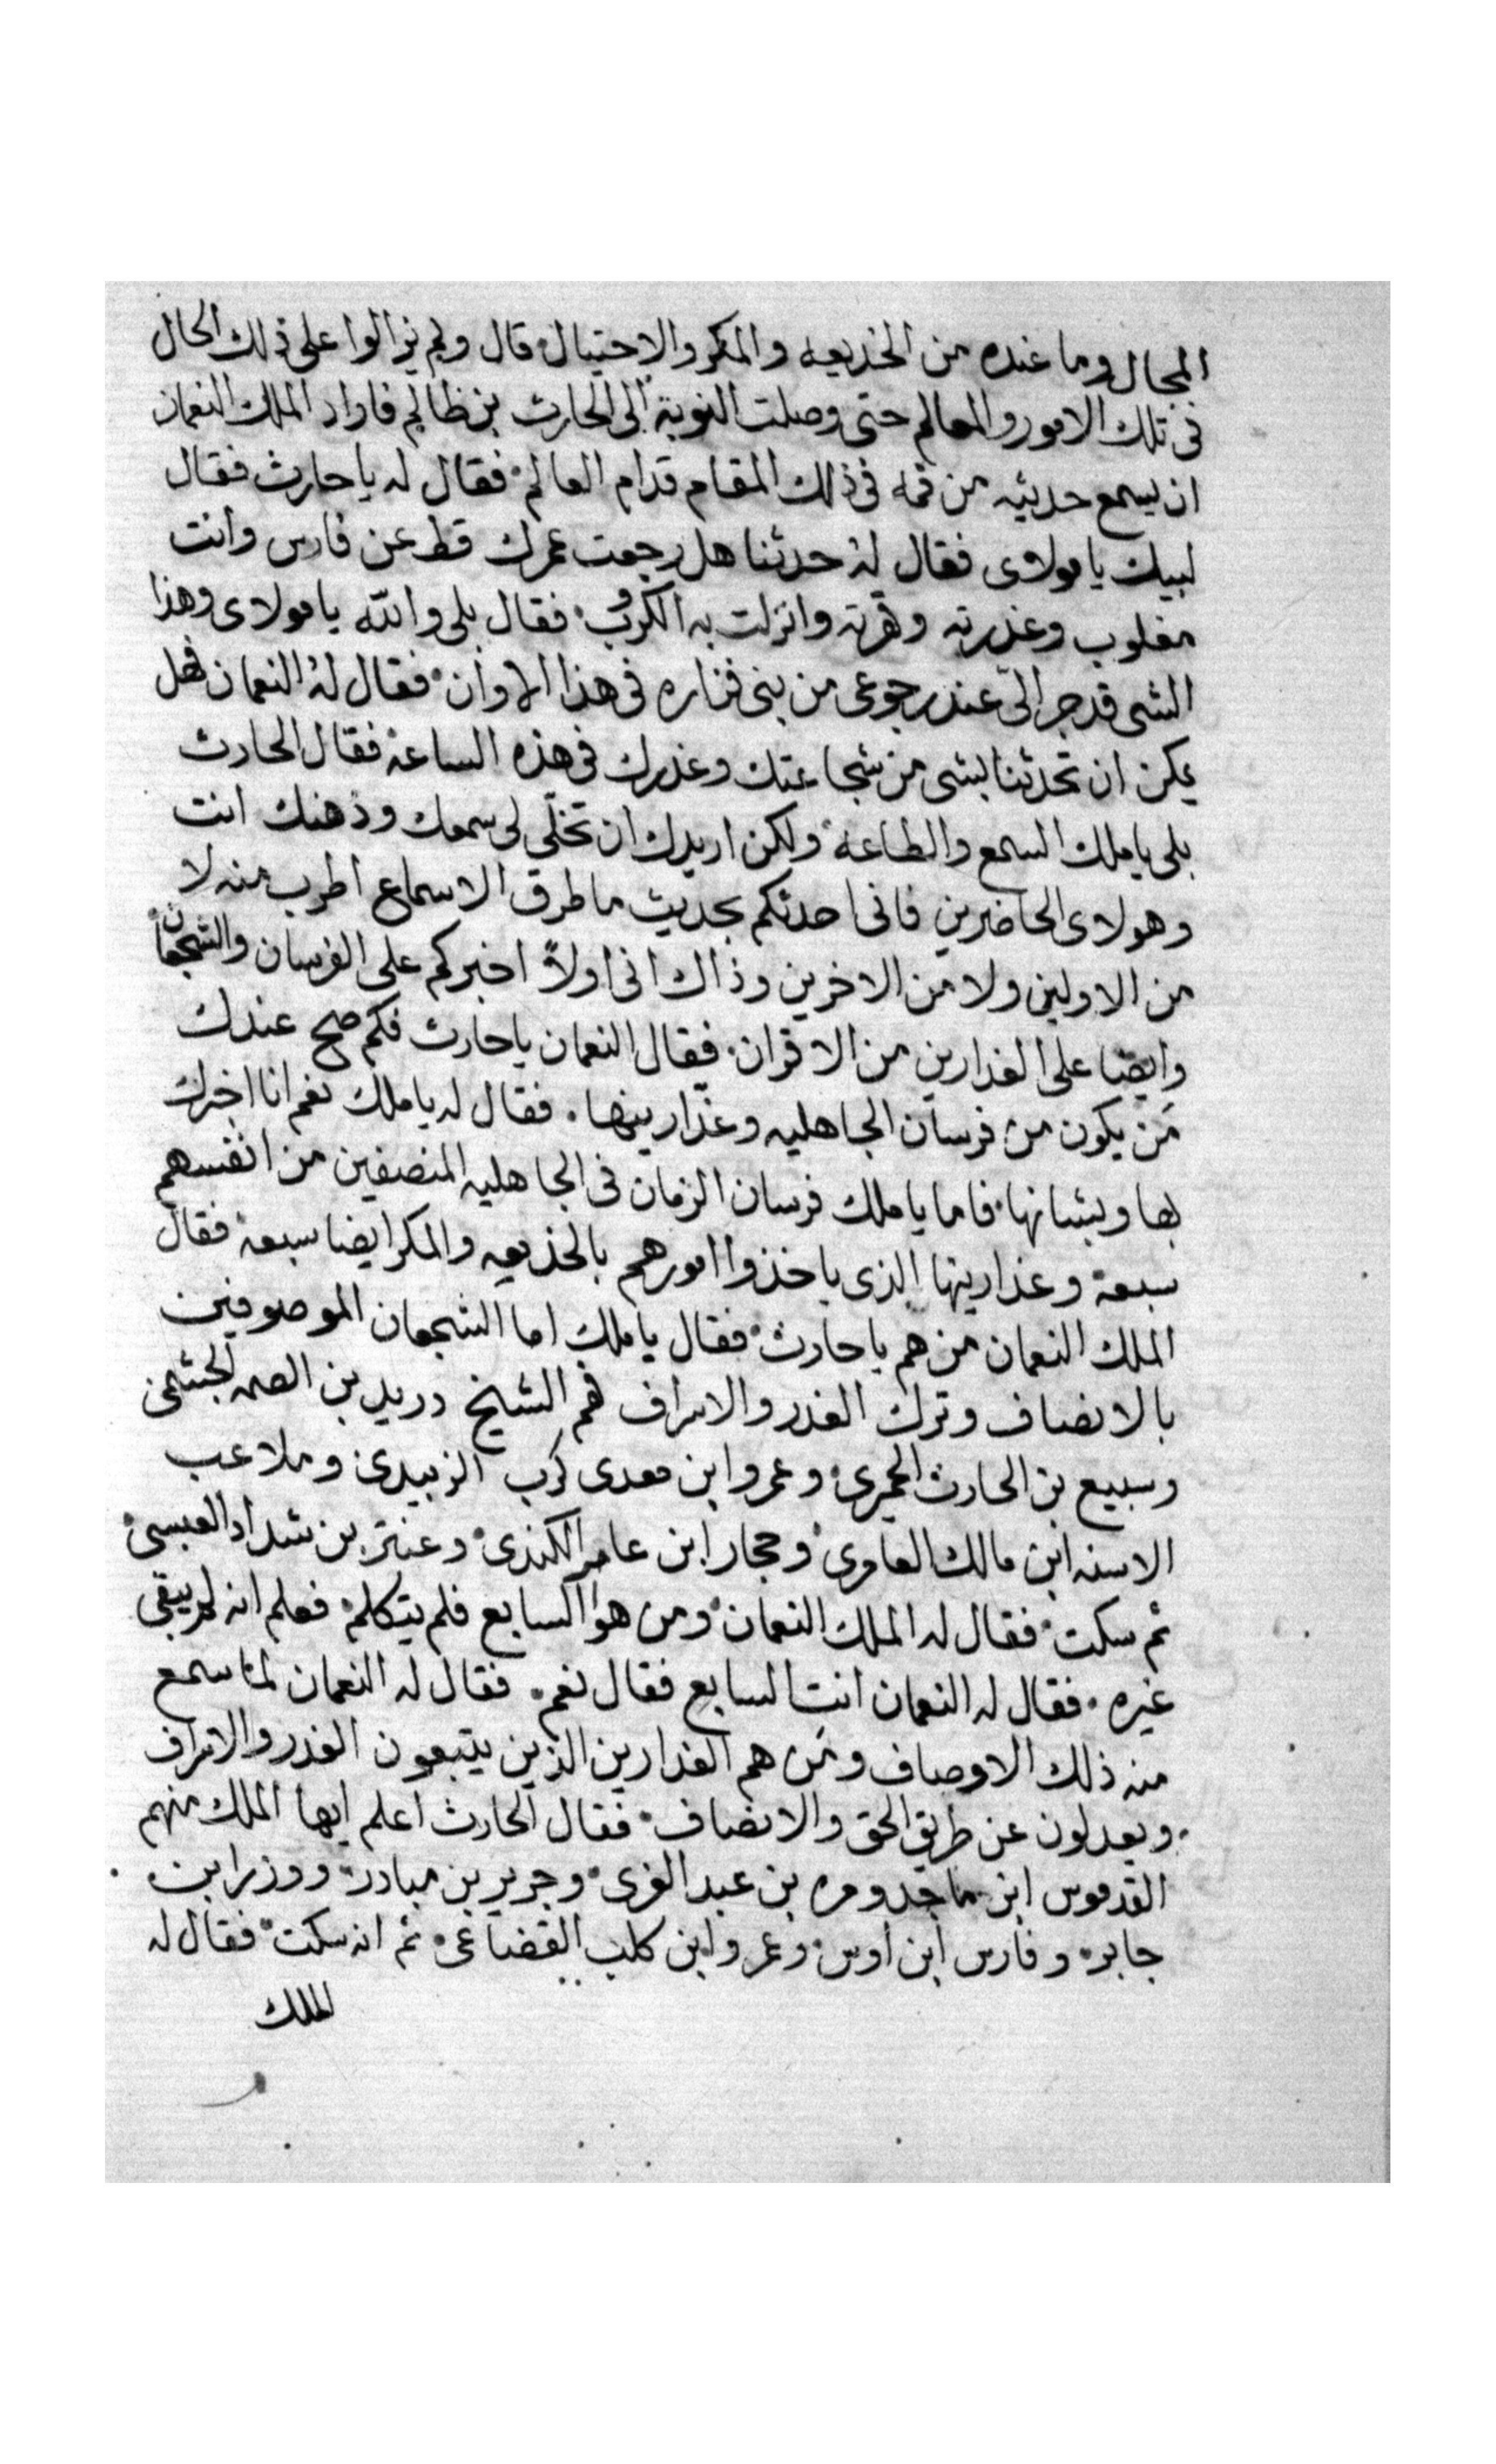 المجال وما عنده من الخديعه والمكر والاحتيال قال ولم يزالوا على ذلك الحال
فى تلك الامور والمعالم حتى وصلت النوبة الى الحارث بن ظالم فاراد الملك النعمان
ان يسمع حديثه من فمه فى ذلك المقام قدام العالم فقال له يا حارث فقال
لبيك يا مولاى فقال له حدثنا هل رجعت عمرك قط عن فارس وانت
مغلوب وغدرته وقهرته وانزلت به الكروب فقال بلى والله يا مولاى وهذا
الشى قد جرا لى عند رجوعى من بنى فزاره فى هذا الاوان فقال له النعمان فهل
يمكن ان تحدثنا بشى من شجاعتك وغدرك فى هذه الساعة فقال الحارث
بلى يا ملك السمع والطاعة ولكن اريدك ان تخلّى لى سمعك وذهنك انت
وهولاى الحاضرين فانى احدثكم بحديث ما طرق الاسماع اطرب منه لا
من الاولين ولا من الاخرين وذاك انى اولاً اخبركم على الفرسان والشجعان
وايضا على الغدارين من الاقران فقال النعمان يا حارث فكم صح عندك
مَن يكون من فرسان الجاهليه وغدارينها فقال له يا ملك نعم انا اخبرك
بها وبشانها فاما يا ملك فرسان الزمان فى الجاهليه المنصفين من انفسهم
سبعة وغدارينها الذى ياخذوا امورهم بالخديعه والمكر ايضا سبعة فقال
الملك النعمان من هم يا حارث فقال يا ملك اما الشجعان الموصوفين
بالانصاف وترك الغدر والاسراف فهم الشيخ دريد بن الصمه الجشمى
وسبيع بن الحارث الحميرى وعمرو ابن معدى كرب الزبيدى وملاعب
الاسنه ابن مالك العامرى وحجار ابن عامر الكندى وعنتر بن شداد العبسى
ثم سكت فقال له الملك النعمان ومن هو السابع فلم يتكلم فعلم انه لم يبقى
غيره فقال له النعمان انت السابع فقال نعم فقال له النعمان لمّا سمع
منه ذلك الاوصاف ومَن هم الغدارين الذين يتبعون الغدر والاسراف
ويعدلون عن طريق الحق والانصاف فقال الحارث اعلم ايها الملك منهم
القدموس ابن ماجد ومره بن عبد العزى وجرير بن مبادر ووزر ابن
جابر وفارس ابن اوس وعمرو ابن كلب القضاعى ثم انه سكت فقال له
الملك